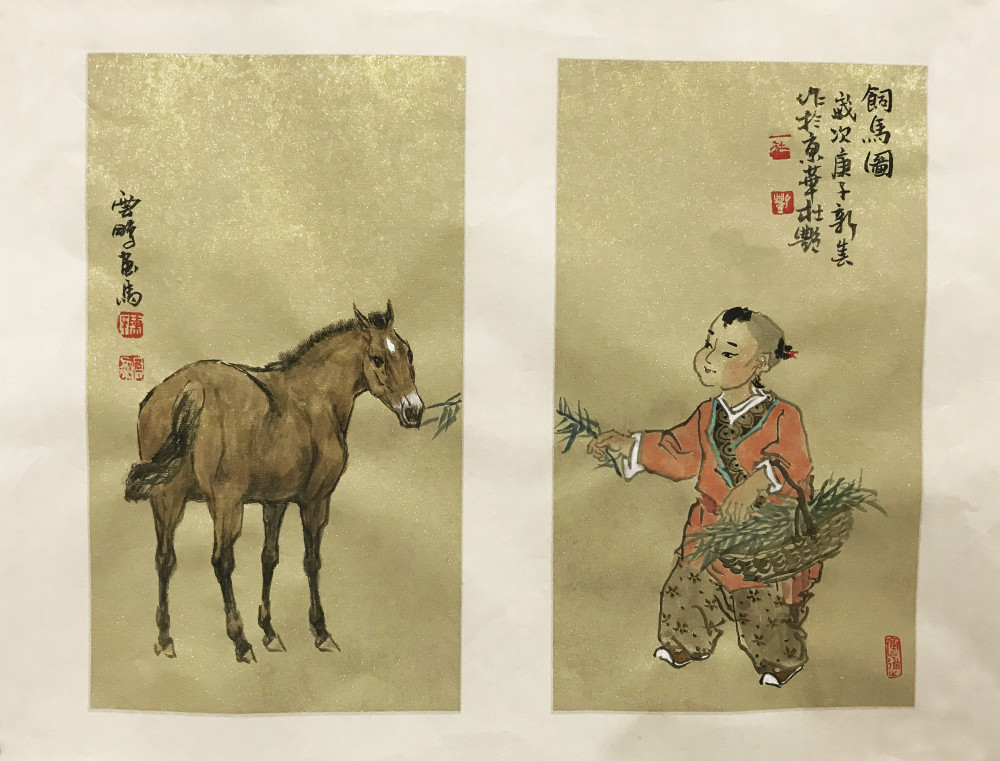 飼馬圖
歲次庚子新春
作於京華杜艷
雲鵬畫馬